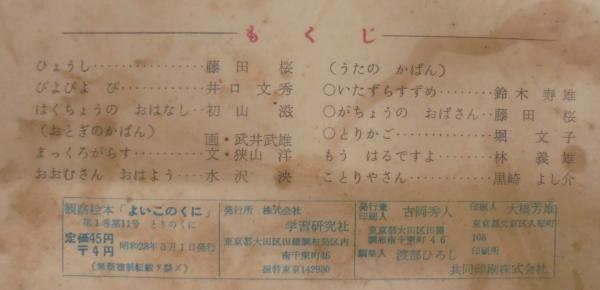 もくじ
ひょうし……………藤田 桜
ぴよぴよ ぴ…………井口文秀
はくちょうの おはなし…初山 滋
(おとぎのかばん)
まっくろがらす………画・武井武雄
文・狭山 洋
おおむさん おはよう……水沢 泱
(うたの かばん)
○いたずらすずめ…………鈴木寿雄
○がちょうの おばさん…藤田 桜
○とりかご……………堀 文子
もう はるですよ…………林 義雄
ことりやさん……………黒崎 よし介
観察絵本「よいこのくに」
第1巻第11号 とりのくに
定価45円
〒4円
昭和28年3月1日発行
《無断複製転載ヲ禁ズ》
発行所 株式会社
学習研究社
東京都大田区田園調布局区内
南千東町46
振替東京142930
発行兼印刷人 古岡秀人
東京都大田区田園
調布南千東町46
編集人 渡部ひろし
印刷人 大橋芳雄
東京都文京区久堅町
108
印刷所
共同印刷株式会社